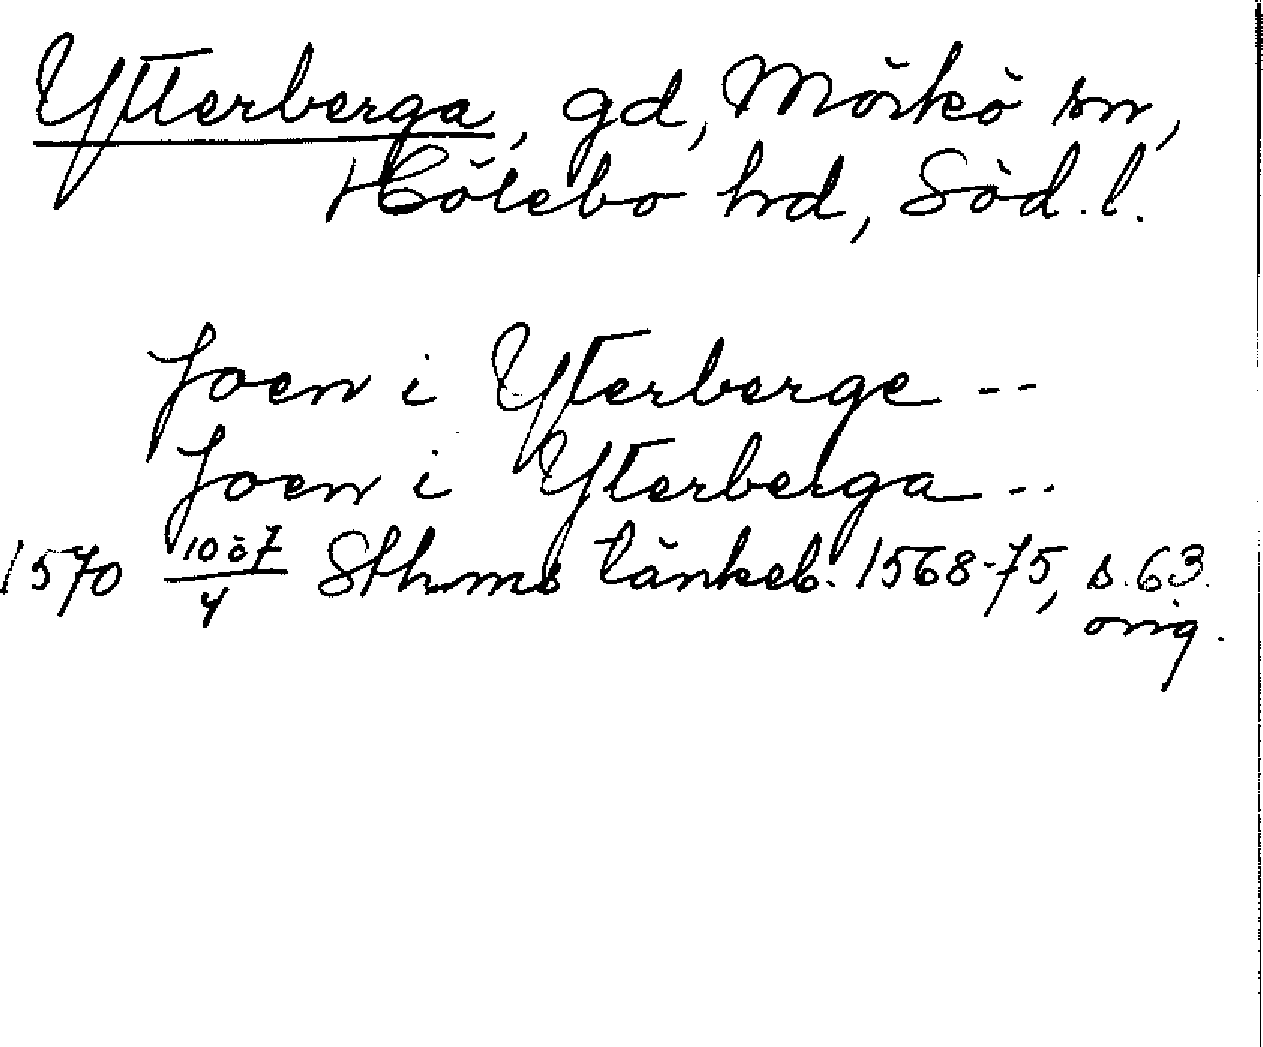 Ytterberga, gd, Mörkö sn,
Hölebo hd, Söd. l.
Joen i Yterberge --
Joen i Yterberga --
1570 10 ö 7/4 Sthms tänkeb. 1568-75, s. 63.
orig.